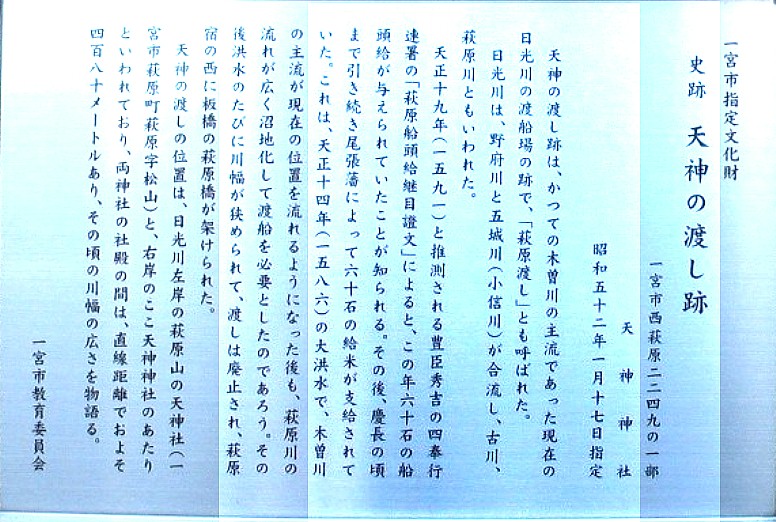 一宮市指定文化財
史跡　天神の渡し跡
一宮市西萩原二二四九の一部
天神神社
昭和五十二年一月十七日指定
天神の渡し跡は、かつての木曽川の主流であった現在の
日光川の渡船場の跡で、「萩原渡し」とも呼ばれた。
日光川は、野府川と五城川（小信川）が合流し、古川、
萩原川ともいわれた。
天正十九年（一五九一）と推測される豊臣秀吉の四奉行
連署の「萩原船頭給継目證文」によると、この年六十石の船
頭給が与えられていたことが知られる。その後、慶長の頃
まで引き続き尾張藩によって六十石の給米が支給されて
いた。これは、天正十四年（一五八六）の大洪水で、木曽川
の主流が現在の位置を流れるようになった後も、萩原川の
流れが広く沼地化して渡船を必要としたのであろう。その
後洪水のたびに川幅が狭められて、渡しは廃止され、萩原
宿の西に板橋の萩原橋が架けられた。
天神の渡しの位置は、日光川左岸の萩原山の天神社（一
宮市萩原町萩原字松山）と、右岸のここ天神神社のあたり
といわれており、両神社の社殿の間は、直線距離でおよそ
四百八十メートルあり、その頃の川幅の広さを物語る。
一宮市教育委員会